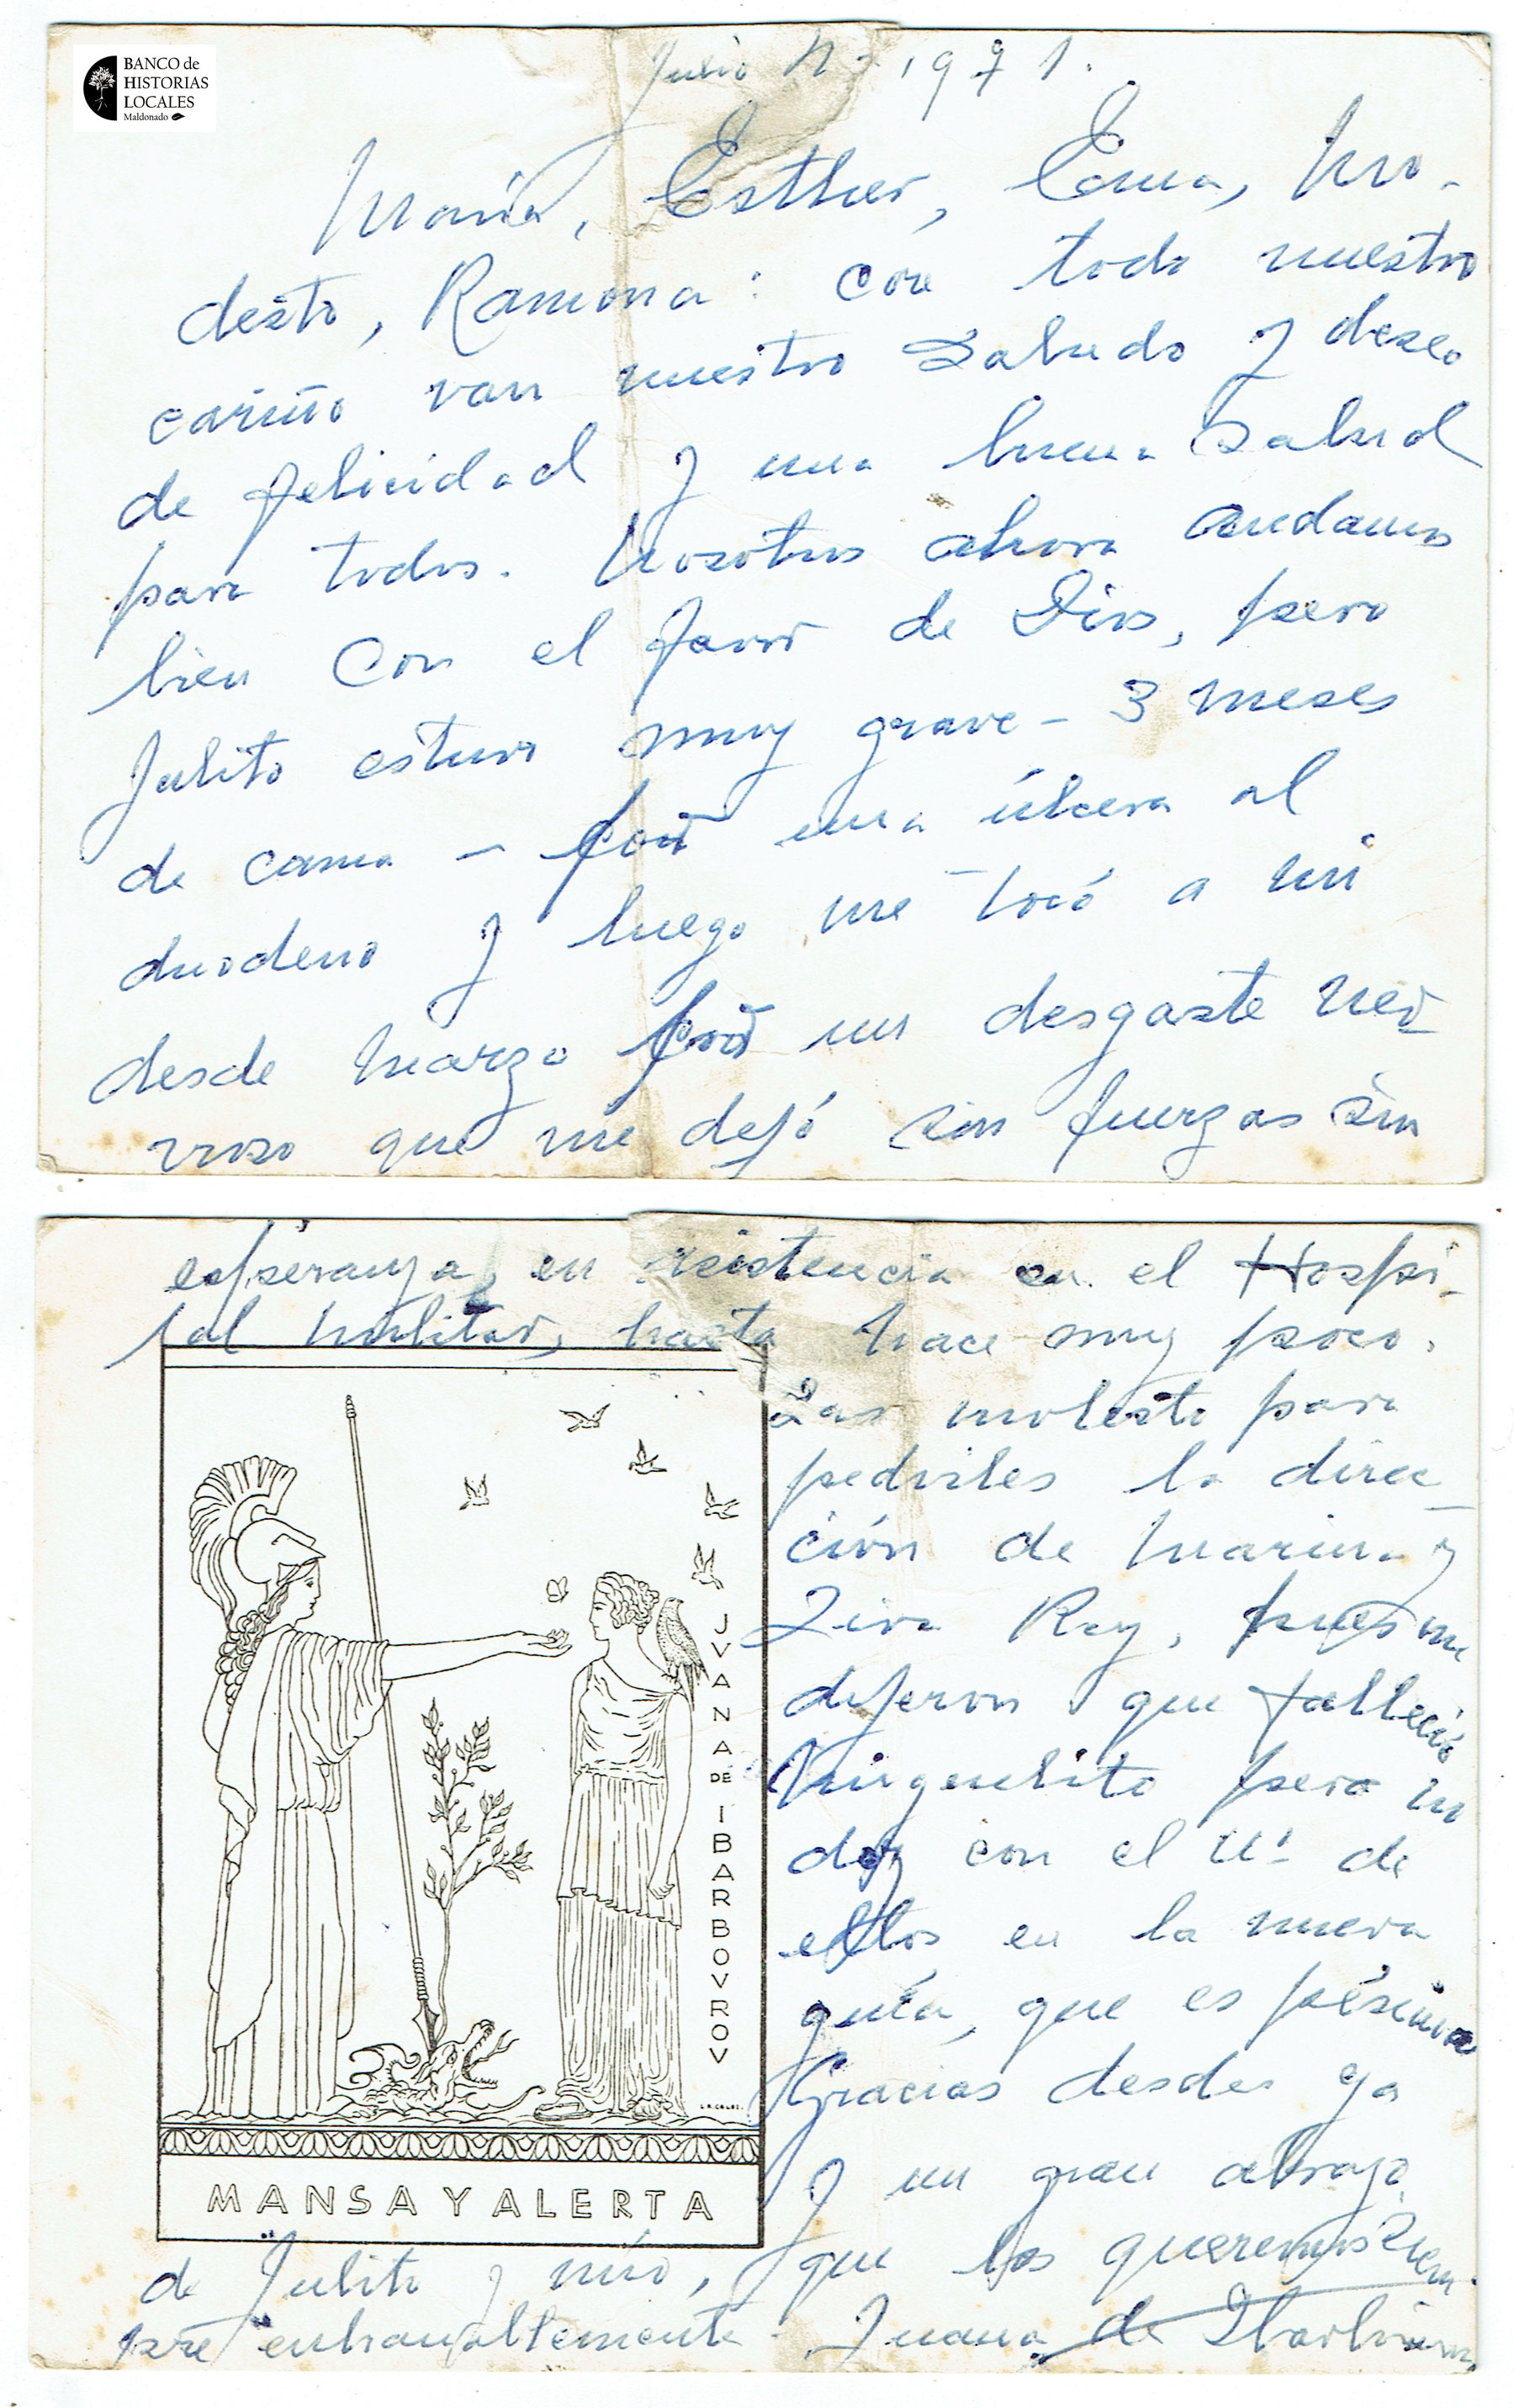 BANCO de
HISTORIAS
LOCALES
Maldonado
Julio 1971.
María, Esther, Ema, Mo-
desto, Ramona: con todo nuestro
cariño van nuestro saludo y deseo
de felicidad y una buena salud
para todos. Nosotros ahora andamos
bien con el favor de Dios, pero
Julito estuvo muy grave - 3 meses
de cama - por una úlcera al
duodeno y luego me tocó a mí
desde marzo por un desgaste ner-
vioso que me dejó sin fuerzas sin
esperanza, en asistencia en el Hospi-
tal Militar, hasta hace muy poco.
Las molesto para
pedirles la direc-
ción de Marina y
Rey, pues me
dijeron que falleció
Minguelito pero no
doy con el Nº de
ellos en la nueva
guía, que es pésima
Gracias desde ya
y un gran abrazo
de Julito y mío, que los queremos siem-
pre entrañablemente. Juana de Ibarbourou
JVANA DE IBARBOVROV
MANSA Y ALERTA